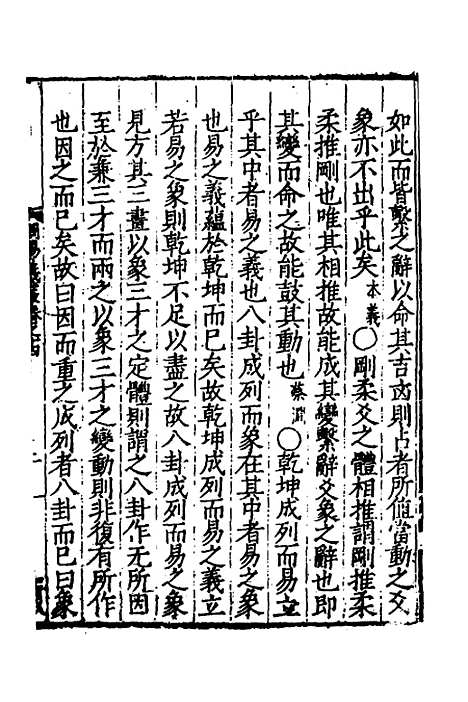 如此而皆繫之辭以命其吉凶則占者所值當動之爻
象亦不出乎此矣本義〇剛柔爻之體相推謂剛推柔
柔推剛也唯其相推故能成其變繫辭爻象之辭也即
其變而命之故能鼓其動也蔡淵〇乾坤成列而易立
乎其中者易之義也八卦成列而象在其中者易之象
也易之義蘊於乾坤而已矣故乾坤成列而易之義立
若易之象則乾坤不足以盡之故八卦成列而易之象
見方其三畫以象三才之定體則謂之八卦作无所因
至於兼三才而兩之以象三才之變動則非復有所作
也因之而已矣故曰因而重之成列者八卦而已曰象